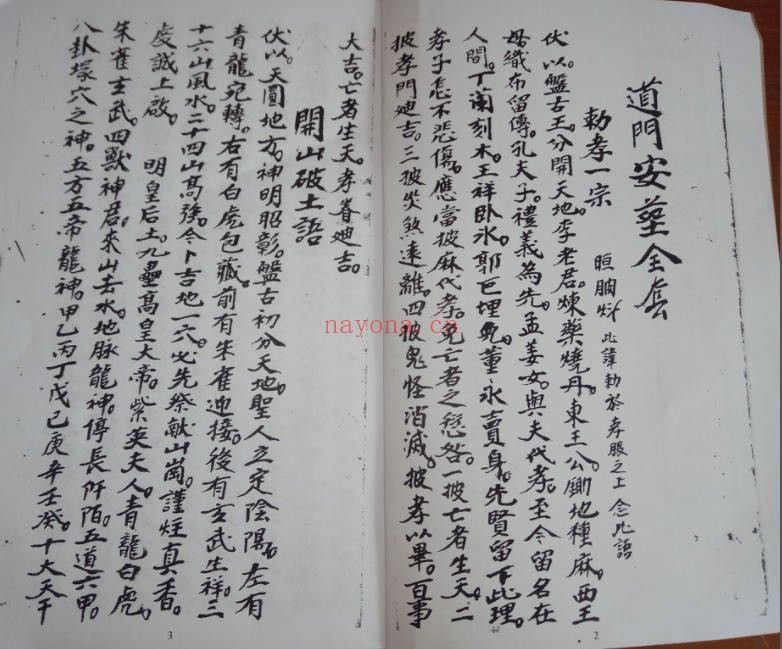 道門安葬全套
勅孝一宗
此諱勅於孝服之上念此語
伏以。盤古王。分開天地。李老君。煉藥燒丹。東王公。鋤地種麻。西王
母。織布留傳。孔夫子。禮義為先。孟姜女。與夫代孝。至今留名在
人間。丁蘭刻木。王祥卧氷。郭巨埋兒。董永賣身。先賢留下此理。
孝子怎不悲傷。應當披麻代孝。免亡者之愆咎。一披亡者生天。二
披孝門迪吉。三披災煞遠離。四披鬼怪消滅。披孝以畢。百事
2
大吉。亡者生天。孝眷迪吉。
開山破土語
伏以。天圓地方。神明昭彰。盤古初分天地。聖人立定陰陽。左有
青龍宛轉。右有白虎包藏。前有朱雀迎接。後有玄武生祥。三
十六山風水。二十四山高強。今卜吉地一穴。必先祭献山崗。謹炷真香。
虔誠上啟。 明皇后土。九壘高皇大帝。紫英夫人。青龍白虎。
朱雀玄武。四獸神君。來山去水。地脉龍神。停長阡陌。五道六甲。
八卦塚穴之神。五方五帝龍神。甲乙丙丁戊己庚辛壬癸。十大天干
3
nayona.cn